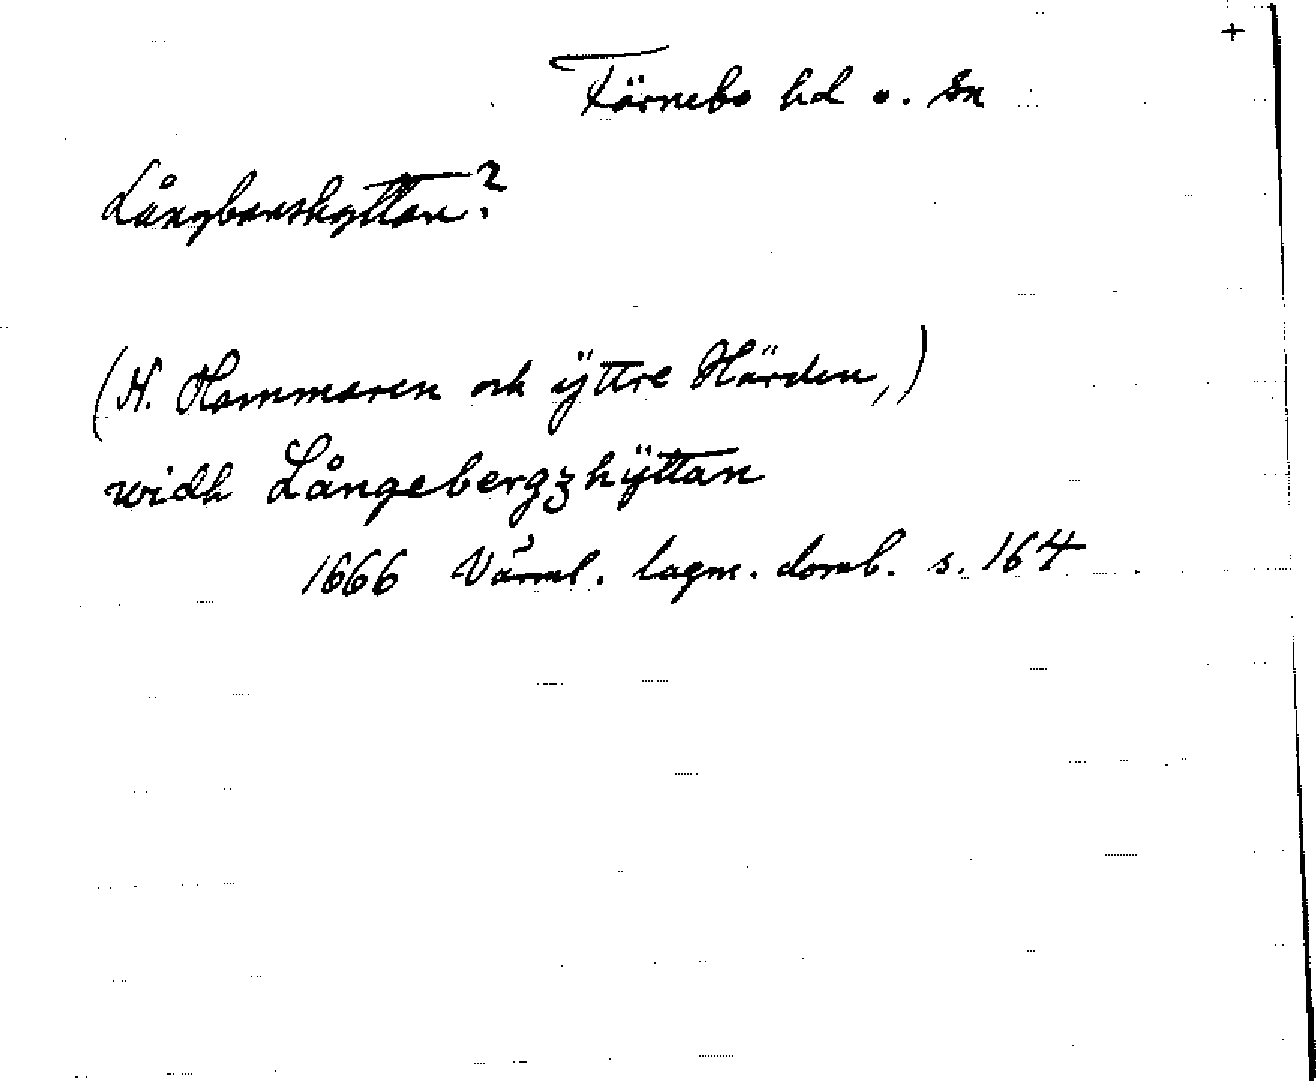 +
Färnebo hd o. sn
Långbanshyttan?
(N. Hammaren och ÿttre Härden,)
widh Långebergzhÿttan
1666 Värml. lagm. domb. s. 164